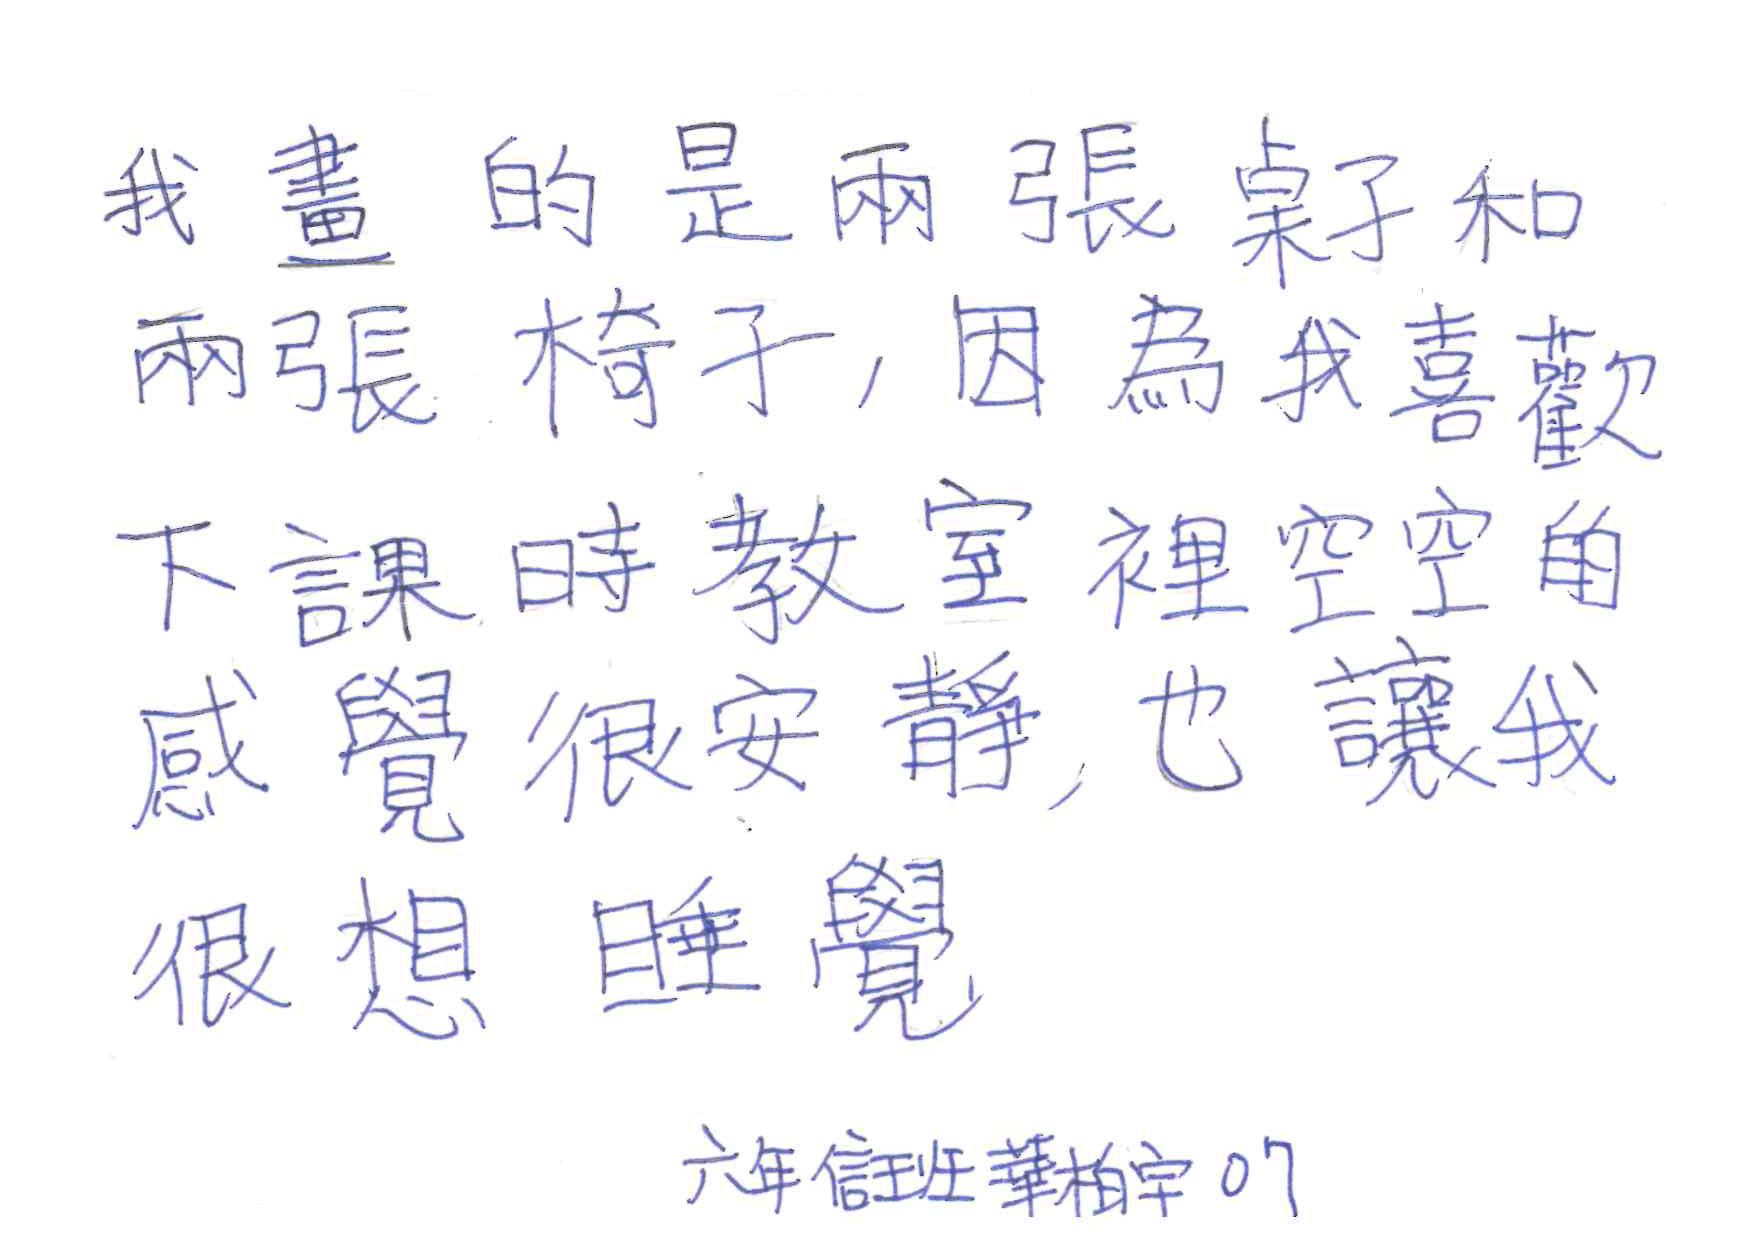 我畫的是兩張桌子和
兩張椅子,因為我喜歡
下課時教室裡空空的
感覺很安靜,也讓我
很想睡覺,
六年信班華柏宇07